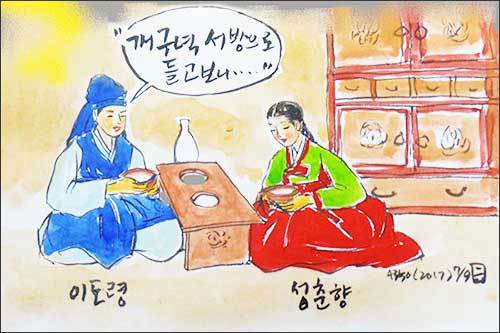 "개구녁 서방으로
들고보니....."
이도령
성춘향
4350(2017) 7/9